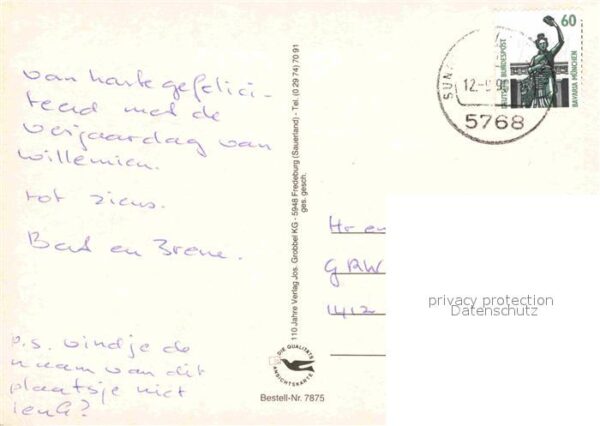 van harte gefelici-
teerd met de
verjaardag van
Willemien.
tot ziens.
Bad en Irene.
p.s. vind je de
naam van dit
plaatsje niet
leuk?
110 Jahre Verlag Jos. Grobbel KG - 5948 Fredeburg (Sauerland) - Tel. (0 29 74) 70 91
ges. gesch.
DIE QUALITÄTS
ANSICHTSKARTE
Bestell-Nr. 7875
SUN
12.-9.9
5768
60
DEUTSCHE BUNDESPOST
BAVARIA MÜNCHEN
Hr en
GRW
1412
privacy protection
Datenschutz